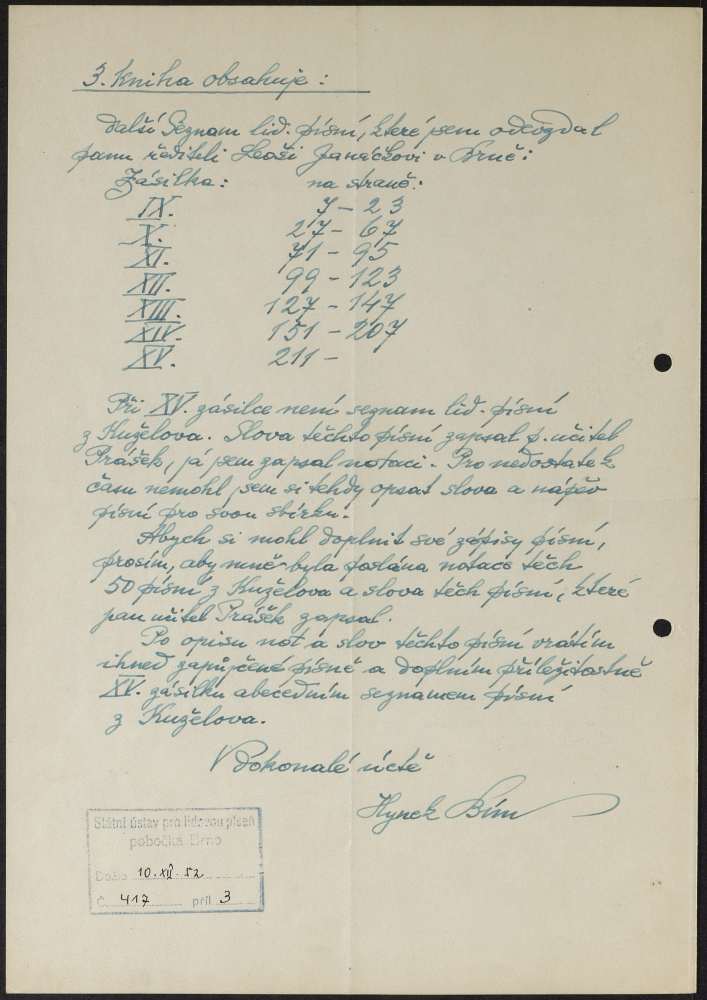 3. Kniha obsahuje:
další Seznam lid. písní, které jsem odevzdal
panu řediteli Leoši Janáčkovi v Brně:
Zásilka: na straně:
IX. 7 – 23
X. 27 – 67
XI. 71 – 95
XII. 99 – 123
XIII. 127 – 147
XIV. 151 – 207
XV. 211 –
Při XV. zásilce není seznam lid. písní
z Kuželova. Slova těchto písní zapsal p. učitel
Prášek, já jsem zapsal notaci. Pro nedostatek
času nemohl jsem si tehdy opsat slova a nápěv
písní pro svou sbírku.
Abych si mohl doplnit své zápisy písní,
prosím, aby mně byla poslána notace těch
50 písní z Kuželova a slova těch písní, které
pan učitel Prášek zapsal.
Po opisu not a slov těchto písní vrátím
ihned zapůjčené písně a doplním příležitostně
XV. zásilku abecedním seznamem písní
z Kuželova.
V dokonalé úctě
Hynek Bím
Státní ústav pro lidovou píseň
pobočka Brno
Došlo 10. XII. 52
Č. 417 příl. 3